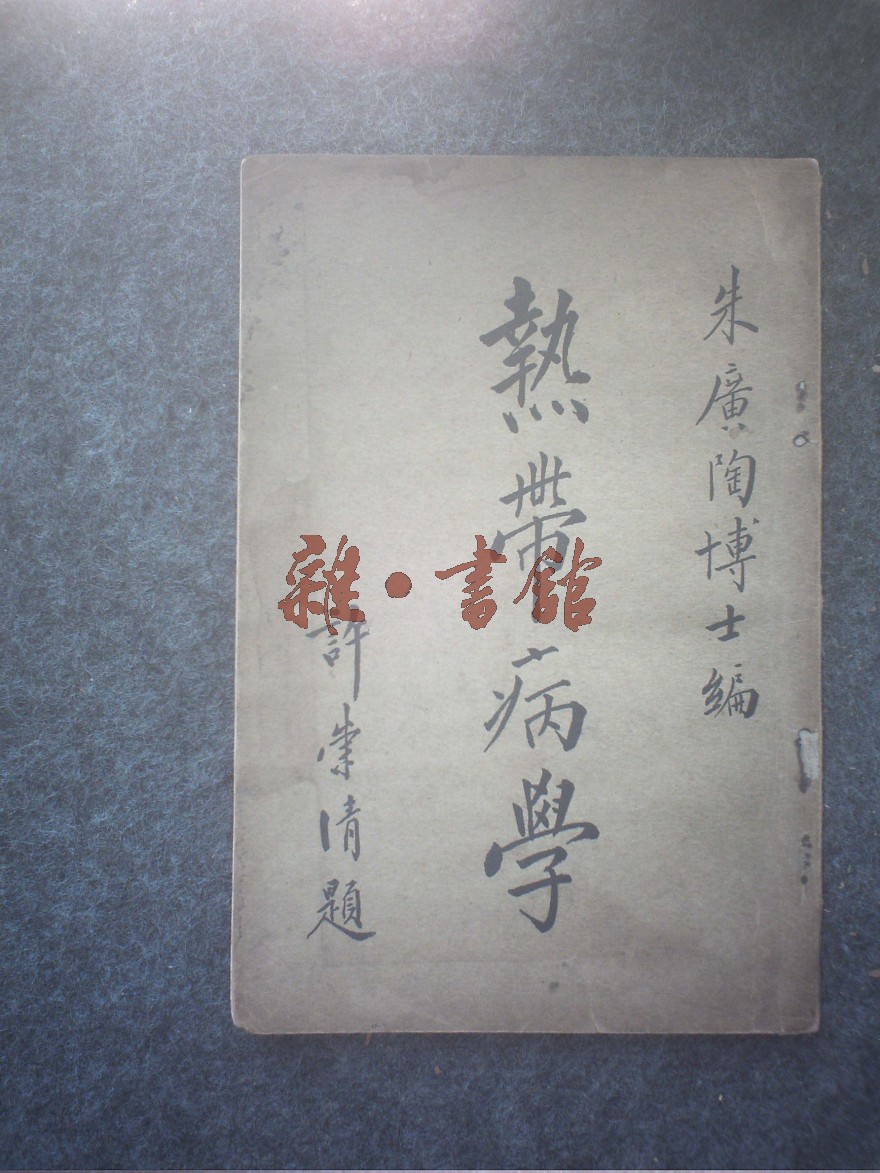 朱廣陶博士編
熱帶病學
許崇清題
雜·書館